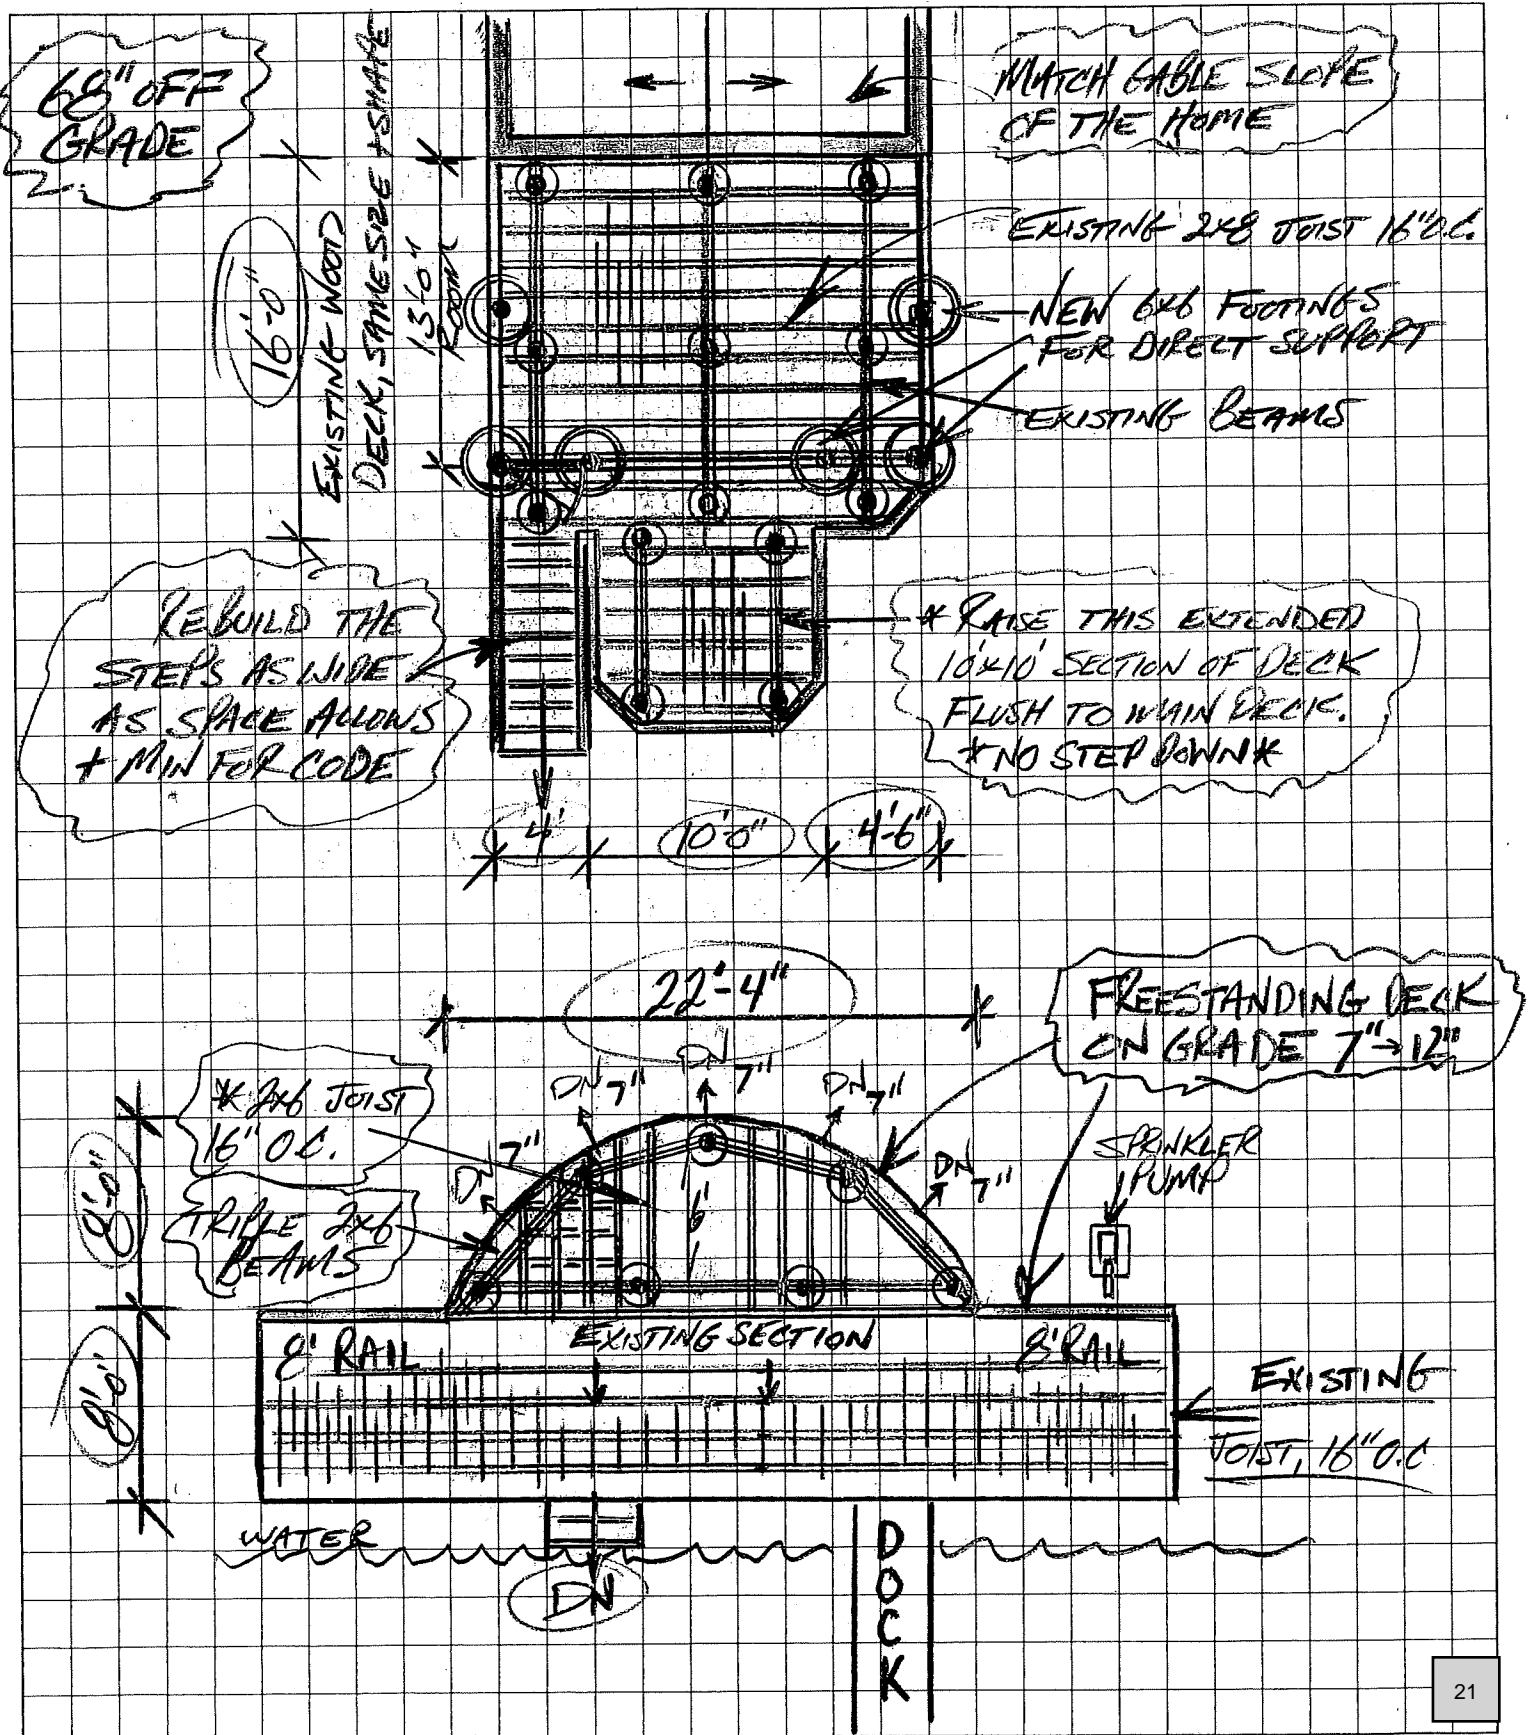 68" OFF
GRADE
MATCH GABLE SLOPE
OF THE HOME
16'-0"
EXISTING WOOD
DECK, SAME SIZE + SHAPE
13'-0"
ROOM
EXISTING 2x8 JOIST 16" O.C.
NEW 6x6 FOOTINGS
FOR DIRECT SUPPORT
EXISTING BEAMS
REBUILD THE
STEPS AS WIDE
AS SPACE ALLOWS
+ MIN FOR CODE
* RAISE THIS EXTENDED
10'x10' SECTION OF DECK
FLUSH TO MAIN DECK.
*NO STEP DOWN*
4' 10'-0" 4'-6"
22'-4"
FREESTANDING DECK
ON GRADE 7"→12"
* 2x6 JOIST
16" O.C.
TRIPLE 2x6
BEAMS
DN 7"
DN 7"
DN 7"
DN 7"
DN 7"
SPRINKLER
PUMP
8'-0"
6'
8'-0"
8' RAIL
EXISTING SECTION
8' RAIL
EXISTING
JOIST, 16" O.C
WATER
DN
DOCK
21